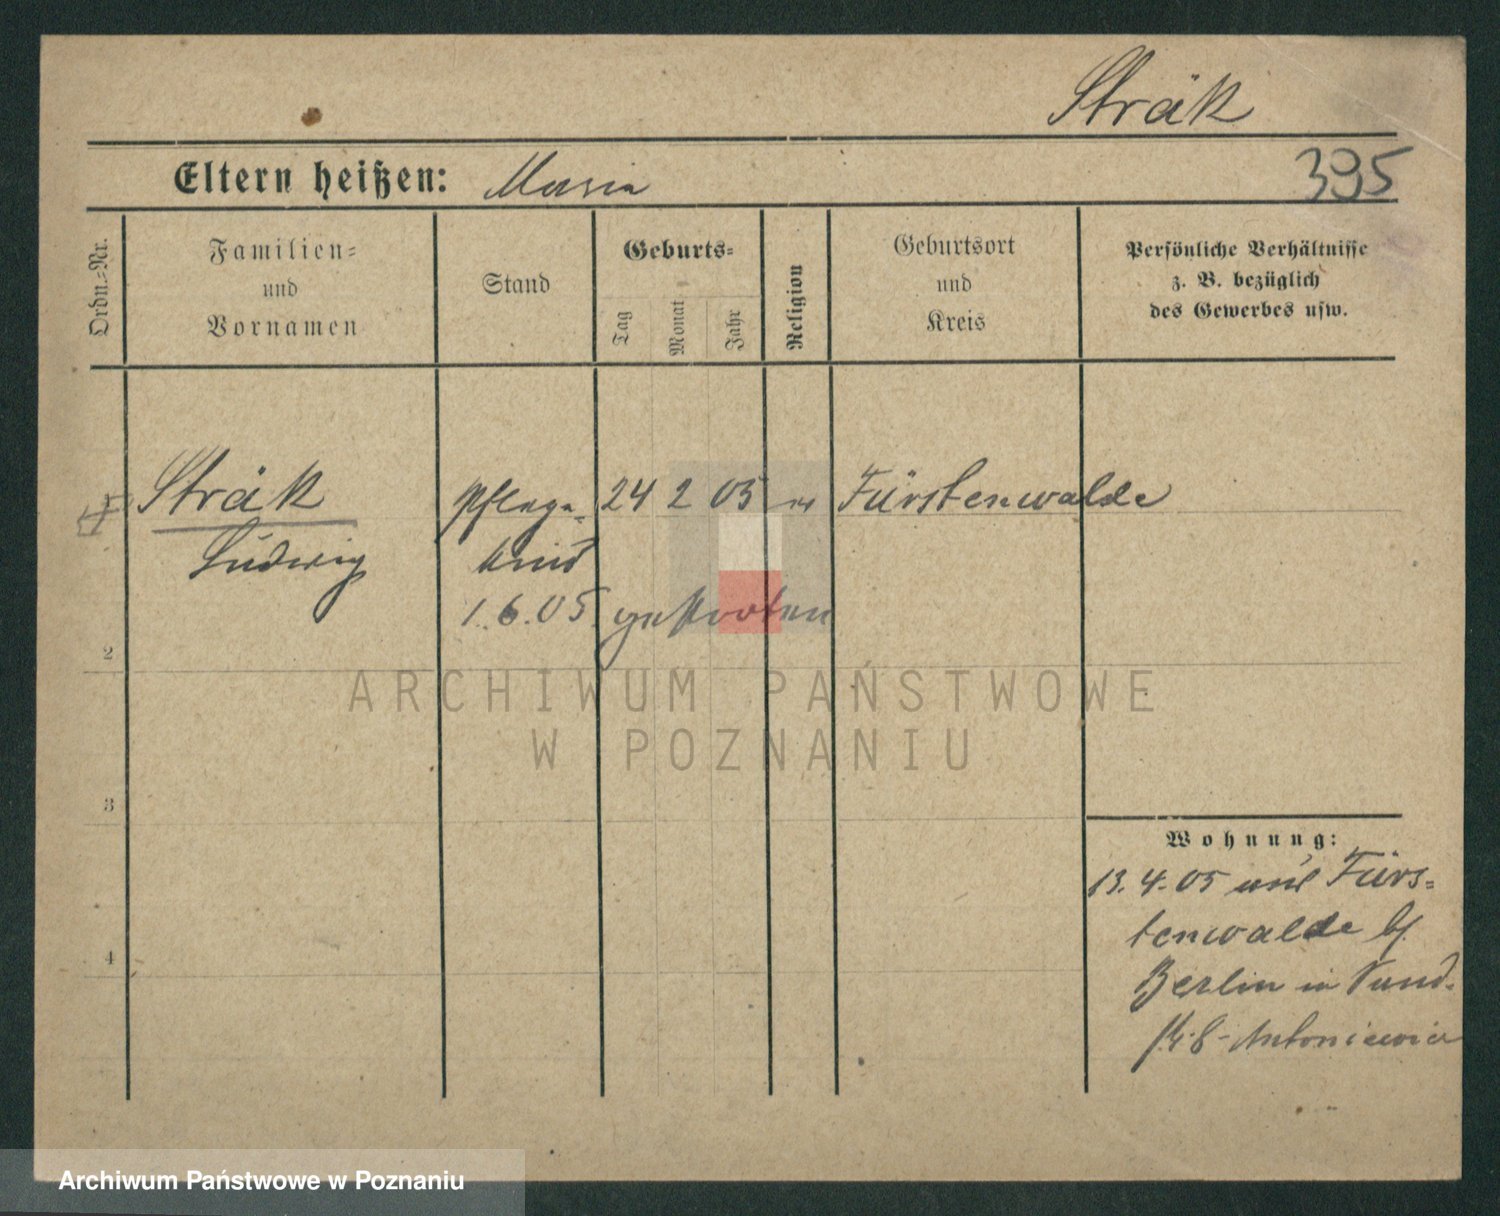 Sträk
Eltern heißen: Maria
395
Ordn.-Nr.
Familien-
und
Vornamen
Stand
Geburts-
Tag
Monat
Jahr
Religion
Geburtsort
und
Kreis
Persönliche Verhältnisse
z. B. bezüglich
des Gewerbes usw.
Sträk Pflege- 24 2 05 Fürstenwalde
Ludwig kind
1.6.05 gestorben
2
ARCHIWUM PAŃSTWOWE
W POZNANIU
3
Wohnung:
13.4.05 aus Fürs-
tenwalde b/
4
Berlin in
8 Antoniewicz
Archiwum Państwowe w Poznaniu